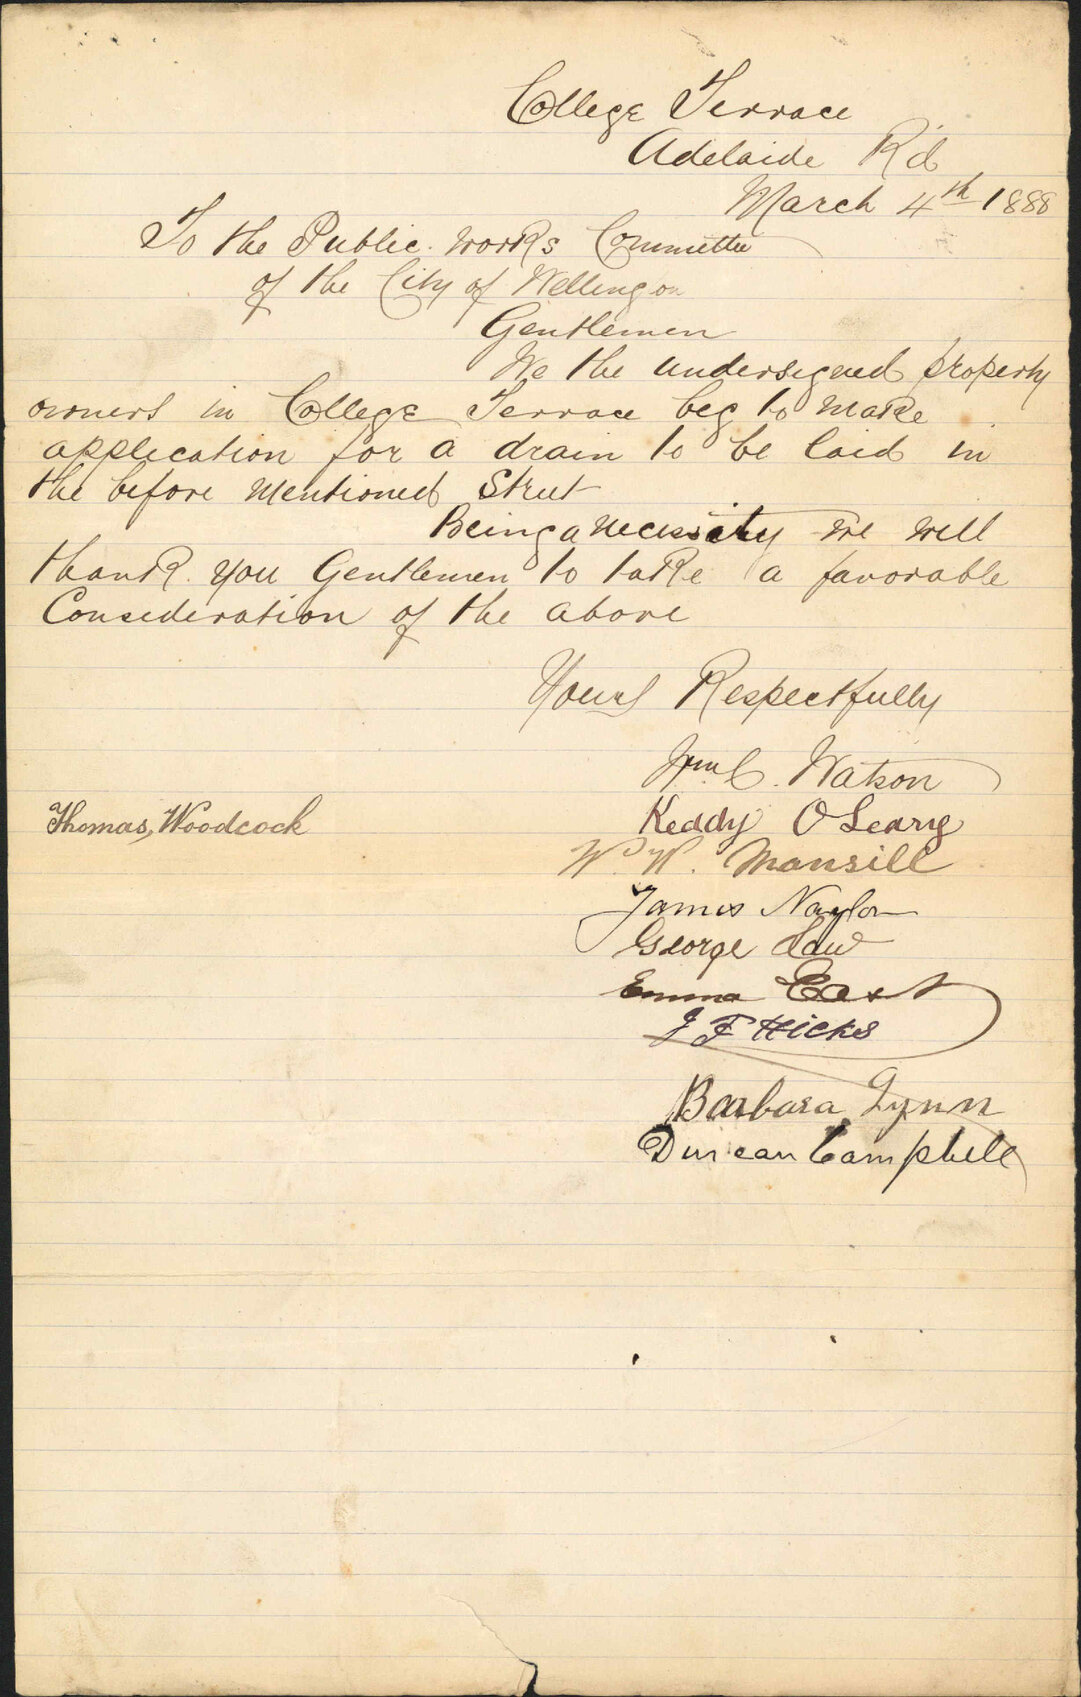 College Terrace
Adelaide Rd
March 4th 1888
To the Public Works Committee
of the City of Wellington
Gentlemen
We the undersigned property
owners in College Terrace beg to make
application for a drain to be laid in
the before mentioned Street
Being a necessity we will
thank you Gentlemen to take a favorable
Consideration of the above
Yours Respectfully
Wm C. Watson
Thomas Woodcock
Keddy O Leary
W. W. Mansill
James Naylor
George Law
Emma East
J F Hicks
Barbara Lynn
Duncan Campbell